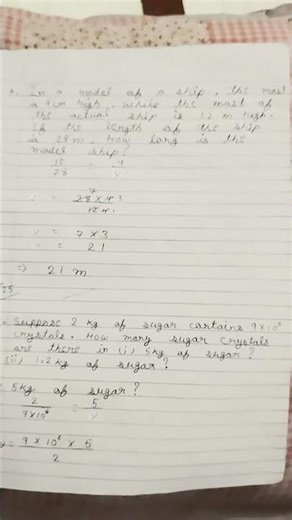 In a model of a ship, the mast
is 9 cm high, while the mast of
the actual ship is 12 m high.
If the length of the ship
is 28 m, how long is the
model ship?
12/28 = 9/y
= 28 × 9 3 / 12 4 1
= 7 × 3
= 21
⇒ 21 m
Suppose 2 kg of sugar contains 9×10⁶
crystals. How many sugar crystals
are there in (i) 5kg of sugar?
(ii) 1.2kg of sugar?
5kg of sugar?
2/9×10⁶ = 5/y
= 9 × 10⁶ × 5 / 2